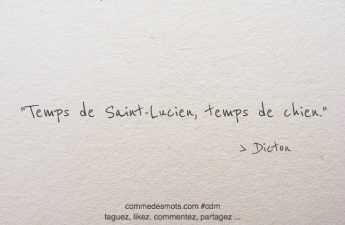 "Temps de Saint-Lucien, temps de chien."
> Dicton
commedesmots.com #cdm
taguez, likez, commentez, partagez ...